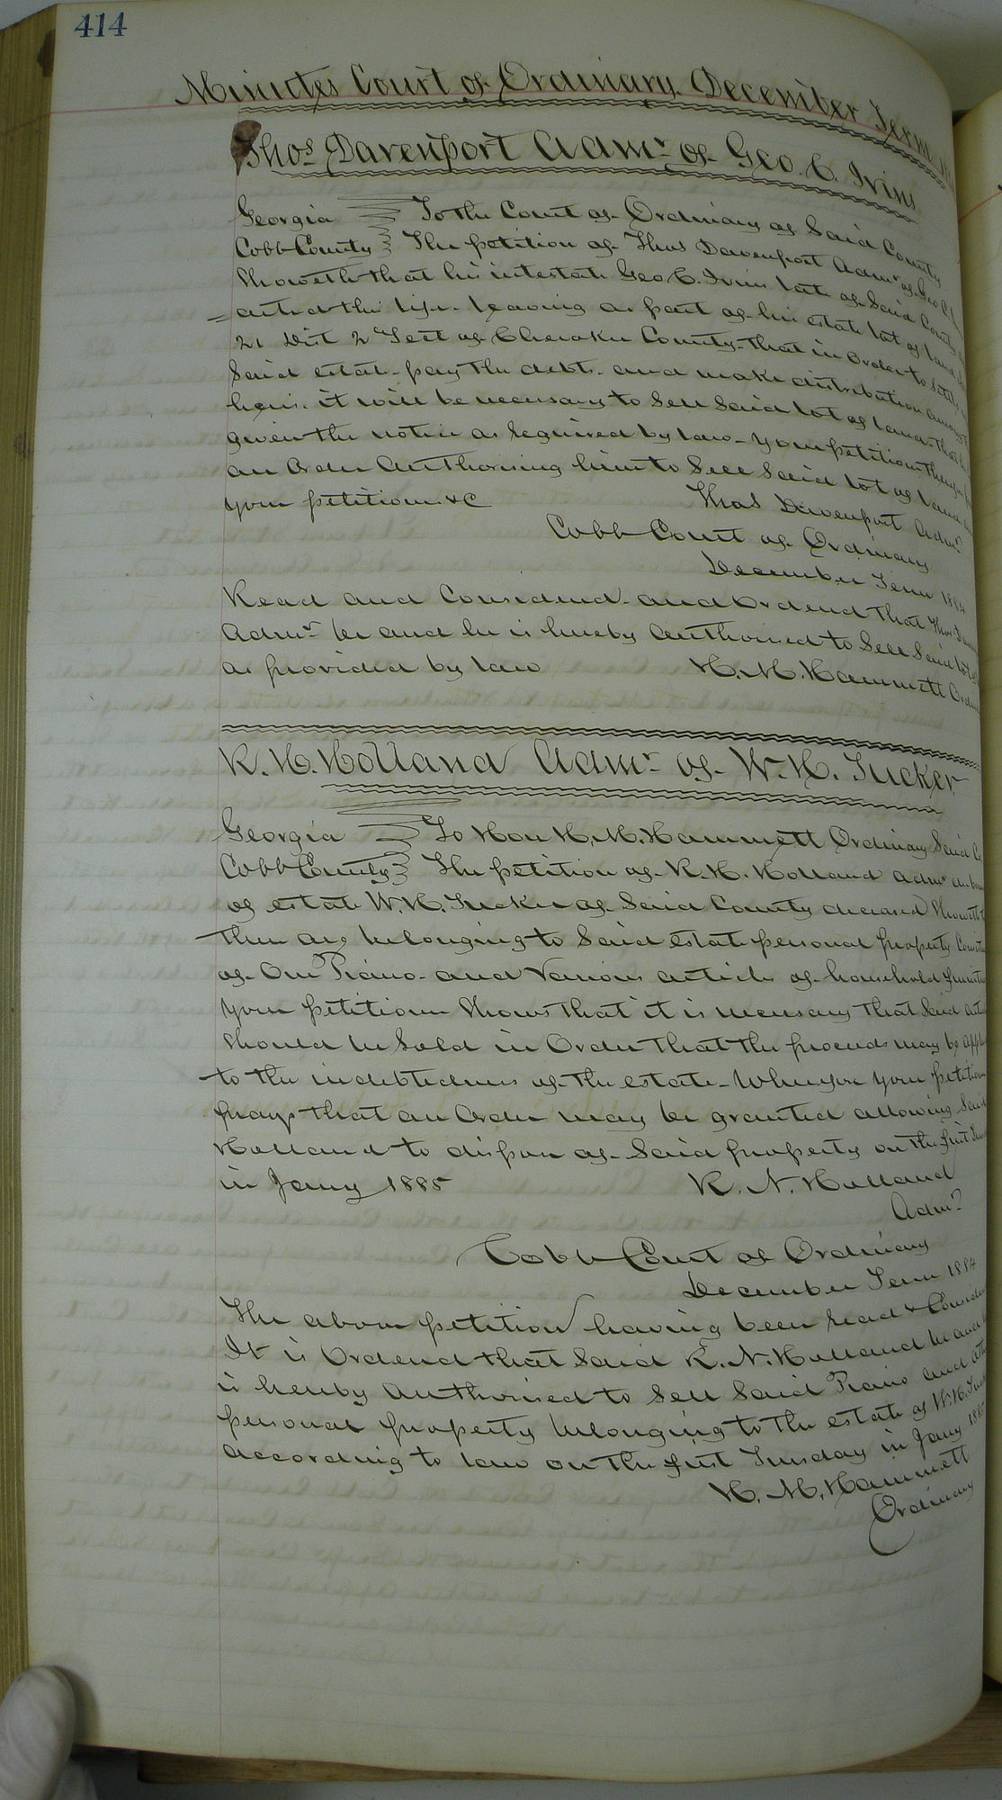 414
Minutes Court of Ordinary December Term
Thos Davenport Admr of Geo. C. Ivins
Georgia To the Court of Ordinary of Said County
Cobb County The petition of Thos Davenport Admr of Geo C
Showeth that his intestate Geo C. Ivins late of Said County
this life leaving as part of his estate lot of land
21 Dist 2d Sect of Cherokee County that in order to settle
Said estate pay the debts and make distribution amongst
heirs it will be necessary to Sell Said lot of land that
given the notice as required by law your petitioner therefore
an Order Authorising him to Sell Said lot of land
your petitioner &C Thos Davenport Admr
Cobb Court of Ordinary
December Term 1884
Read and Considered and Ordered that Thos
Admr be and he is hereby authorised to Sell Said lot of
as provided by law H. M. Hammett
R. N. Holland Admr of W. H. Tucker
Georgia To Hon H. M. Hammett Ordinary Said
Cobb County The petition of R. N. Holland Admr
of estate W. H. Tucker of Said County deceased Showeth
there are belonging to Said estate personal property
of One Piano and Various articles of household
your petitioner Shows that it is necessary that Said
Should be Sold in Order that the proceeds may be
to the indebtedness of the estate Wherefore your petitioner
prays that an Order may be granted allowing Said
Holland to dispose of Said property on the first
in Jany 1885 R. N. Holland
Admr
Cobb Court of Ordinary
December Term 1884
The above petition having been read &
It is Ordered that Said R. N. Holland be and
is hereby authorised to Sell Said Piano and
personal property belonging to the estate of W. H.
according to law on the first Tuesday in Jany
H. M. Hammett
Ordinary